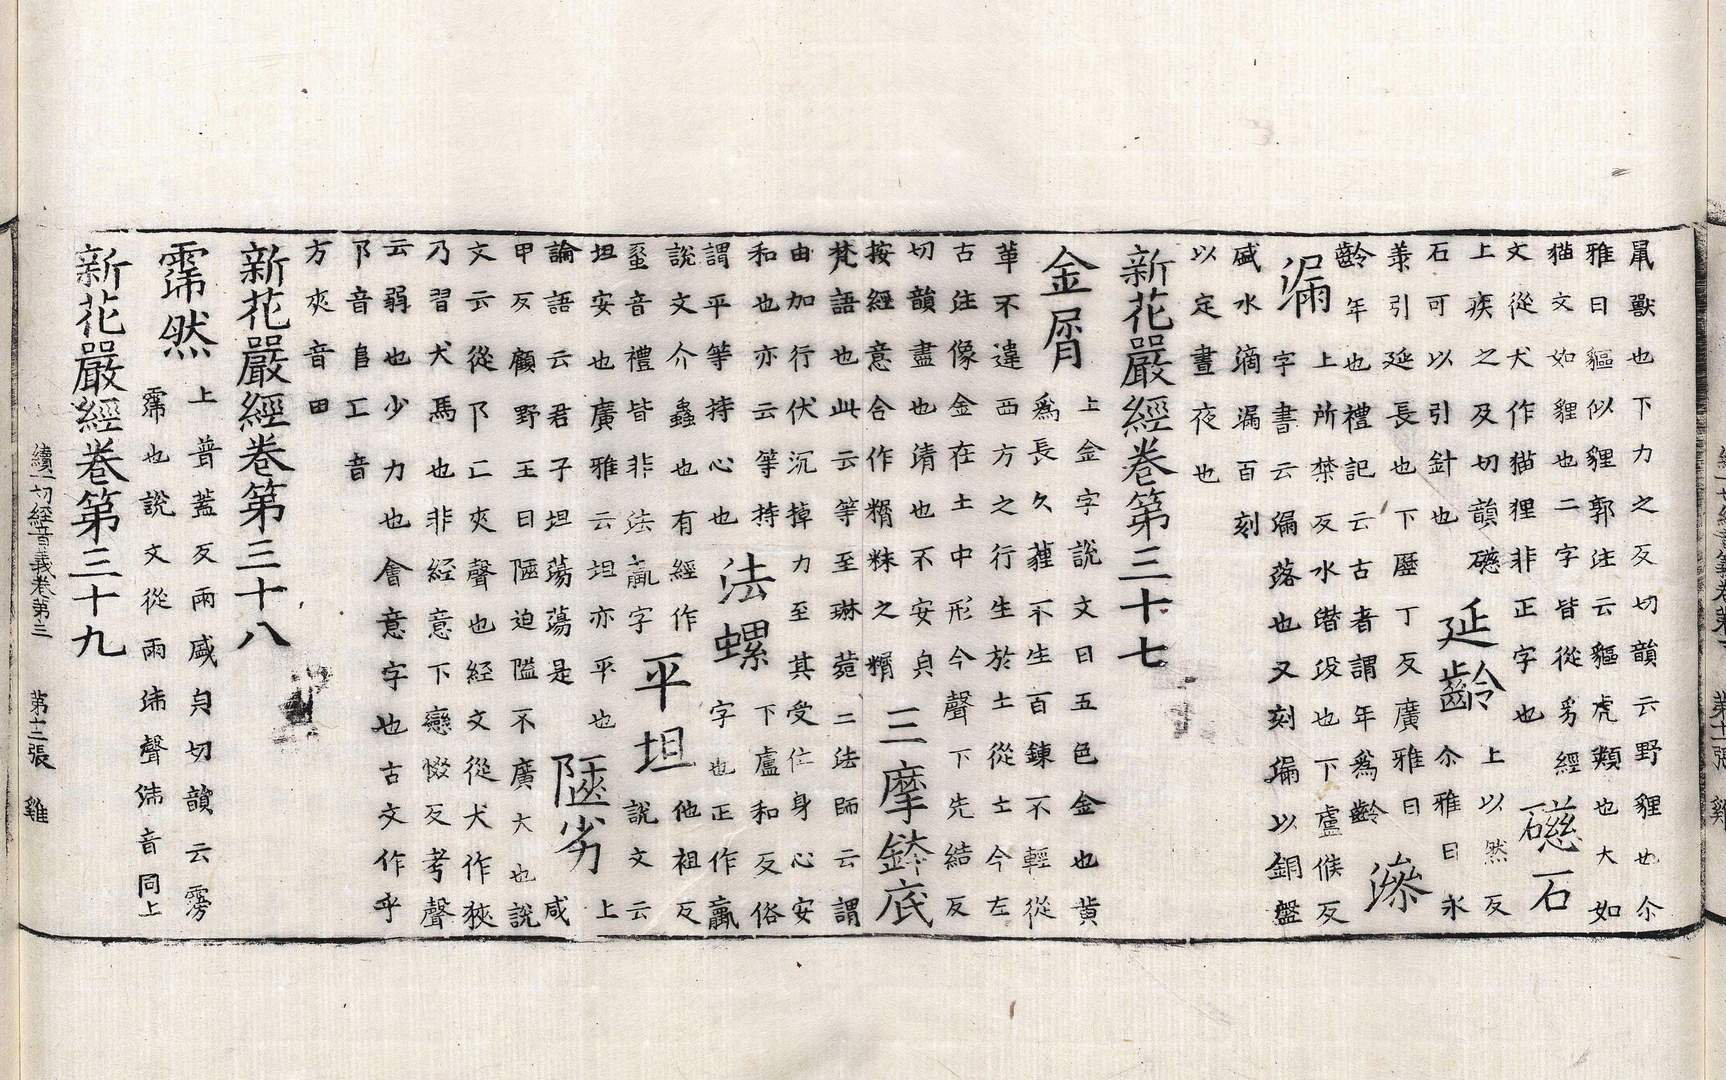 鼠獸也下力之反切韻云野貍也尒
雅曰貙似貍郭注云貙虎類也大如
猫文如貍也二字皆從豸經
文從犬作猫狸非正字也
礠石
上疾之反切韻礠
石可以引針也
延齡
上以然反
尒雅曰永
羕引延長也下歷丁反廣雅曰
齡年也禮記云古者謂年爲齡
滲
漏
上所禁反水潛沒也下盧候反
字書云漏落也又刻漏以銅盤
盛水滴漏百刻
以定晝夜也
新花嚴經卷第三十七
金屑
上金字說文曰五色金也黄
爲長久薶不生百鍊不輕從
革不違西方之行生於土從土今左
古注像金在土中形今聲下先結反
切韻盡也清也不安皃
按經意合作糏粖之糏
三摩鉢底
梵語也此云等至琳菀二法師云謂
由加行伏沉掉力至其受位身心安
和也亦云等持
謂平等持心也
法螺
下盧和反俗
字也正作蠃
說文介蟲也有經作
蜑音禮皆非法蠃字
平坦
他袒反
說文云
坦安也廣雅云坦亦平也
論語云君子坦蕩蕩是
陿劣
上
咸
甲反顧野王曰陿迫隘不廣大也說
文云從阝匚夾聲也經文從犬作狹
乃習犬馬也非經意下戀惙反考聲
云弱也少力也會意字也古文作
阝音𨸏匚音
方夾音田
新花嚴經卷第三十八
霈然
上普蓋反雨盛皃切韻云霶
霈也說文從雨沛聲沛音同上
新花嚴經卷第三十九
續一切經音義卷第三 第十二張 雞